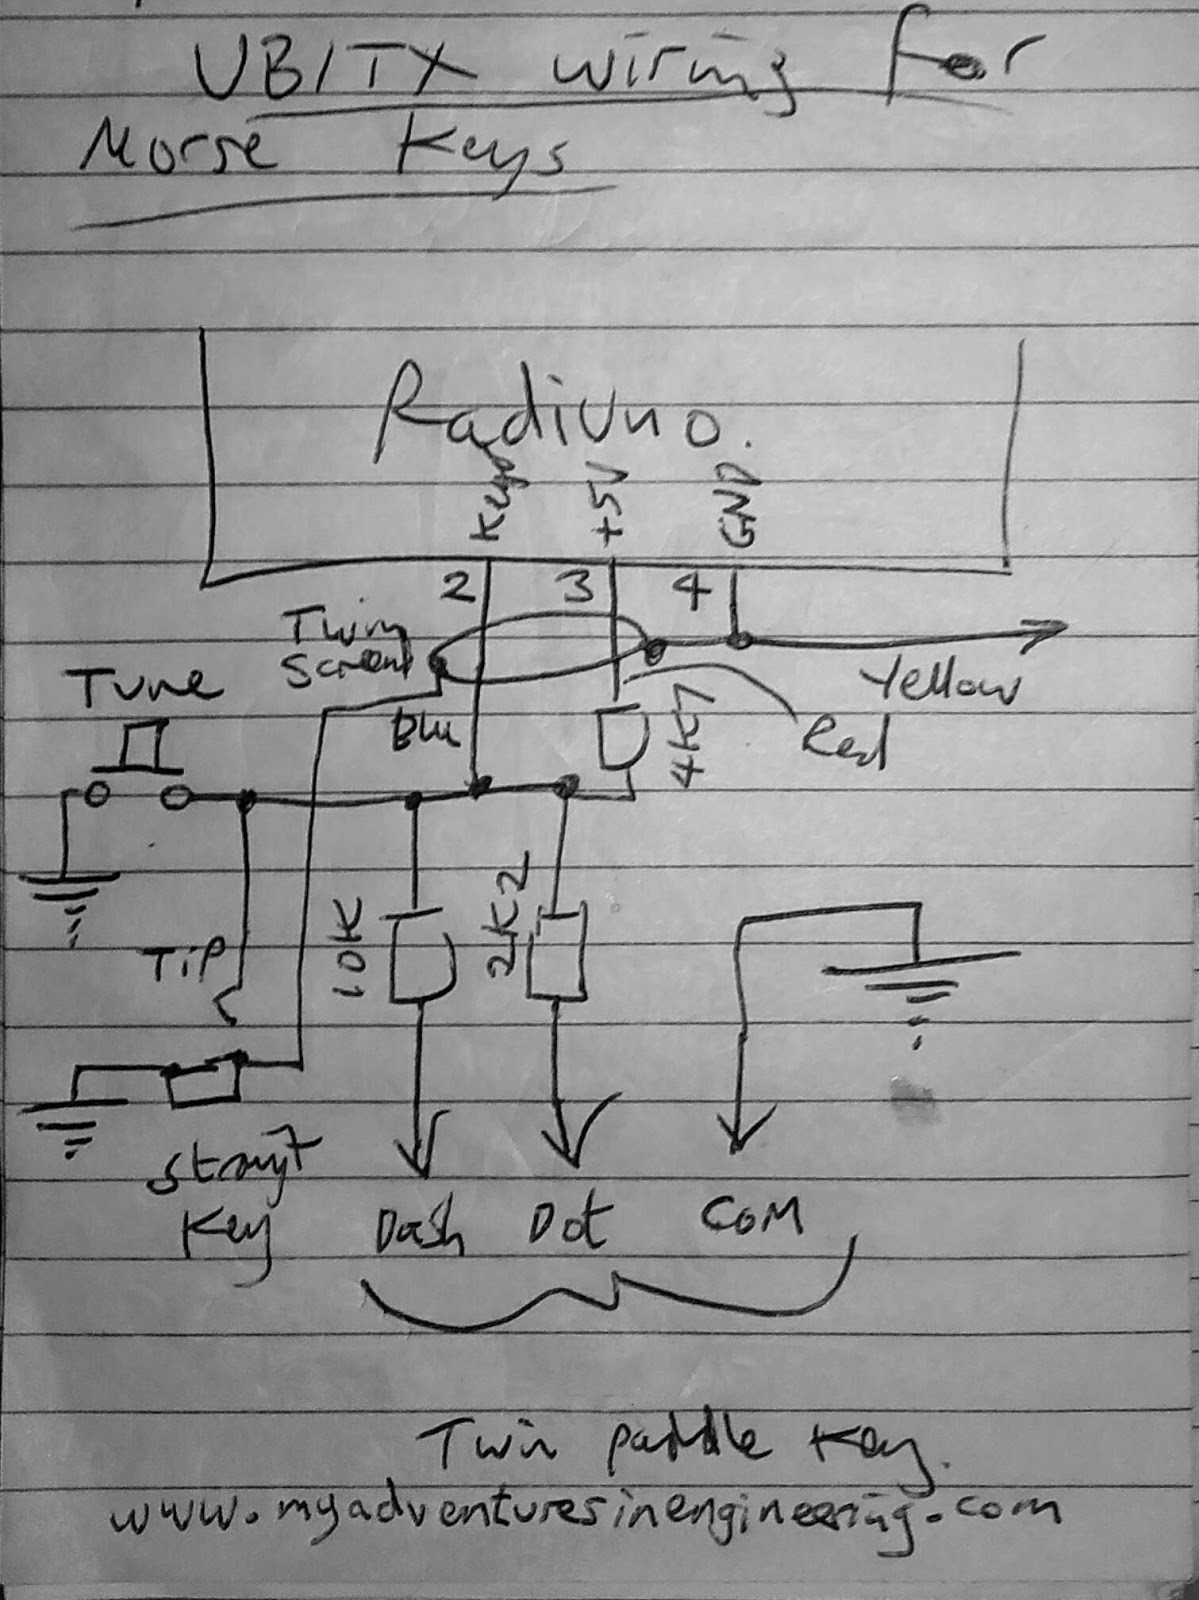 UBITX wiring for
Morse Keys
Radiuno.
Key
+5V
GND
2 3 4
Twin
Screen
Tune
Blu
4K7
Yellow
Red
Tip
10K
2K2
Strayt
Key
Dash Dot COM
Twin paddle Key.
www.myadventuresinengineering.com